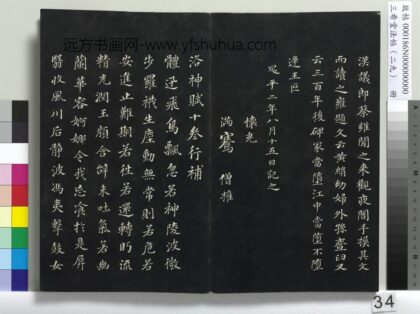 漢議郎蔡雍聞之来觀夜闇手摸其文
而讀之雍題文云黄絹幼婦外孫虀臼又
云三百年後碑冢當墮江中當墮不墮
逢王叵
昇平二年八月十五日記之
懷充
滿騫
僧權
洛神賦十叁行補
體迅飛鳧飄忽若神陵波微
步羅襪生塵動無常則若危若
安進止難期若往若還轉眄流
精光潤玉顏含辭未吐氣若幽
蘭華容婀娜令我忘飡於是屏
翳收風川后静波馮夷擊鼓女
远方书画网-www.yfshuhua.com
故帖 000186N000000000
三希堂法帖(二九) 冊
34